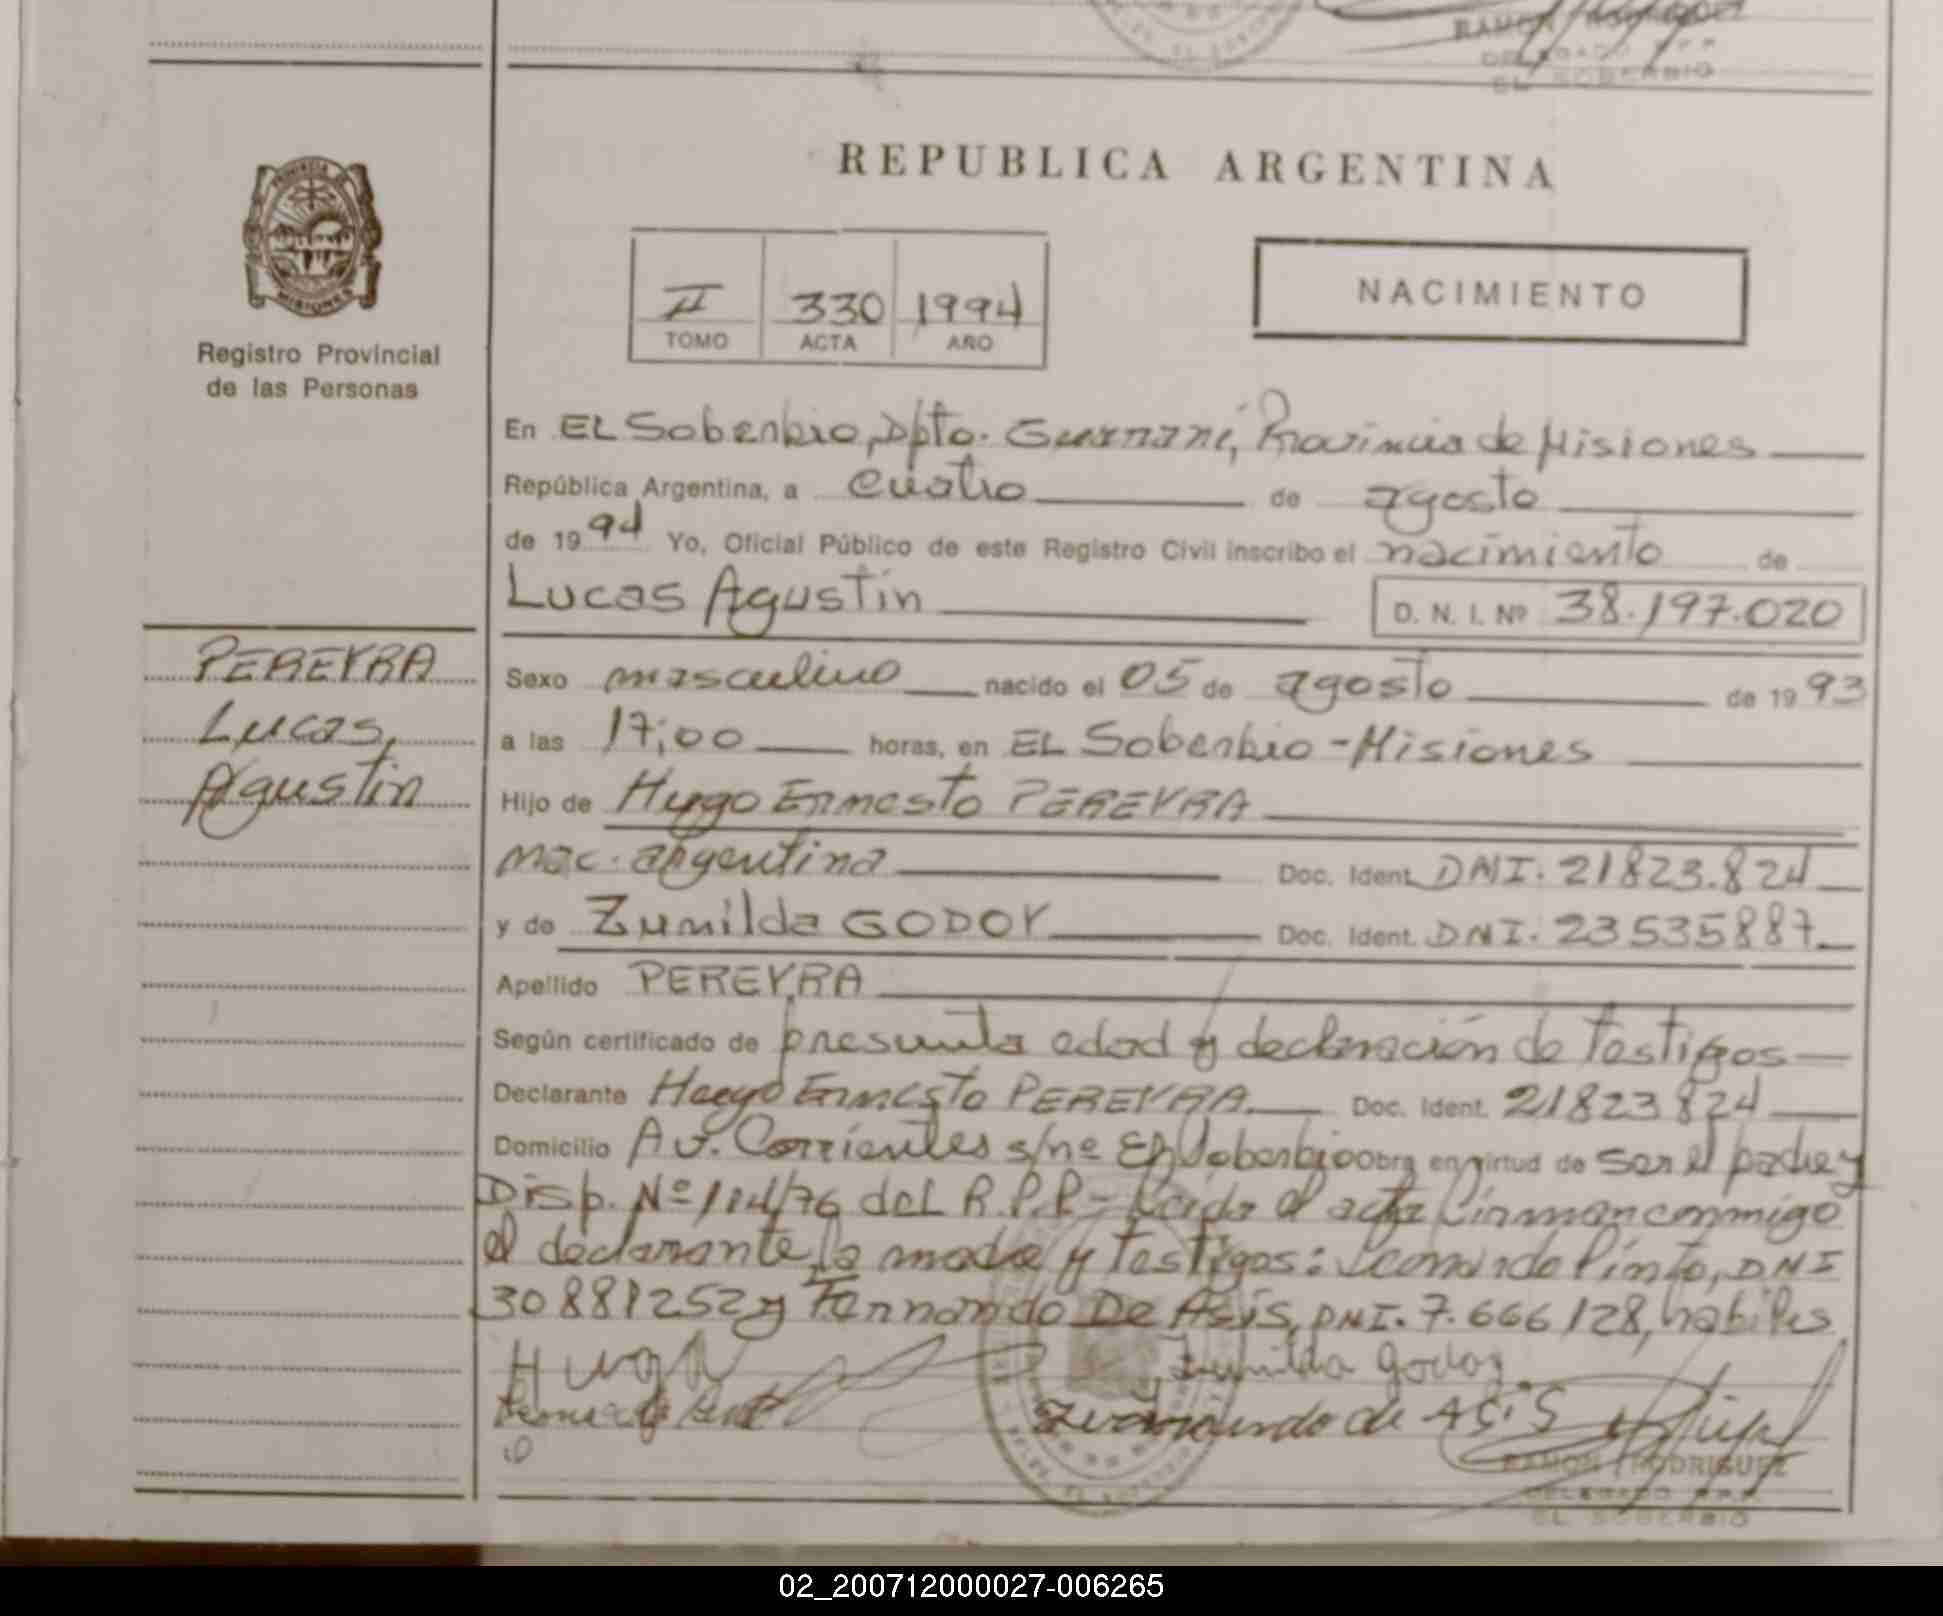 RAMON
EL SOBERBIO
REPUBLICA ARGENTINA
PROVINCIA DE
MISIONES
Registro Provincial
de las Personas
II 330 1994
TOMO ACTA AÑO
NACIMIENTO
En EL Soberbio, Dpto. Guaraní, Provincia de Misiones
República Argentina, a cuatro de agosto
de 1994 Yo, Oficial Público de este Registro Civil inscribo el nacimiento de
Lucas Agustín D. N. I. Nº 38.197.020
PEREYRA
Lucas,
Agustín
Sexo masculino nacido el 05 de agosto de 1993
a las 17;00 horas, en EL Soberbio - Misiones
Hijo de Hugo Ernesto PEREYRA
nac. argentina Doc. Ident. DNI. 21823.824
y de Zunilda GODOY Doc. Ident. DNI. 23535887
Apellido PEREYRA
Según certificado de presunta edad y declaración de testigos
Declarante Hugo Ernesto PEREYRA Doc. Ident. 21823824
Domicilio Av. Corrientes s/nº El Soberbio Obra en virtud de ser el padre y
Disp. Nº 114/76 del R.P.P - Leída el acta firman conmigo
el declarante, la madre y testigos: Leonardo Pinto, DNI
30881252 y Fernando De Asís, DNI. 7.666128, habiles
Hugo
Zunilda Godoy
de ASiS
RAMON RODRIGUEZ
DELEGADO R.P.P.
EL SOBERBIO
02_200712000027-006265